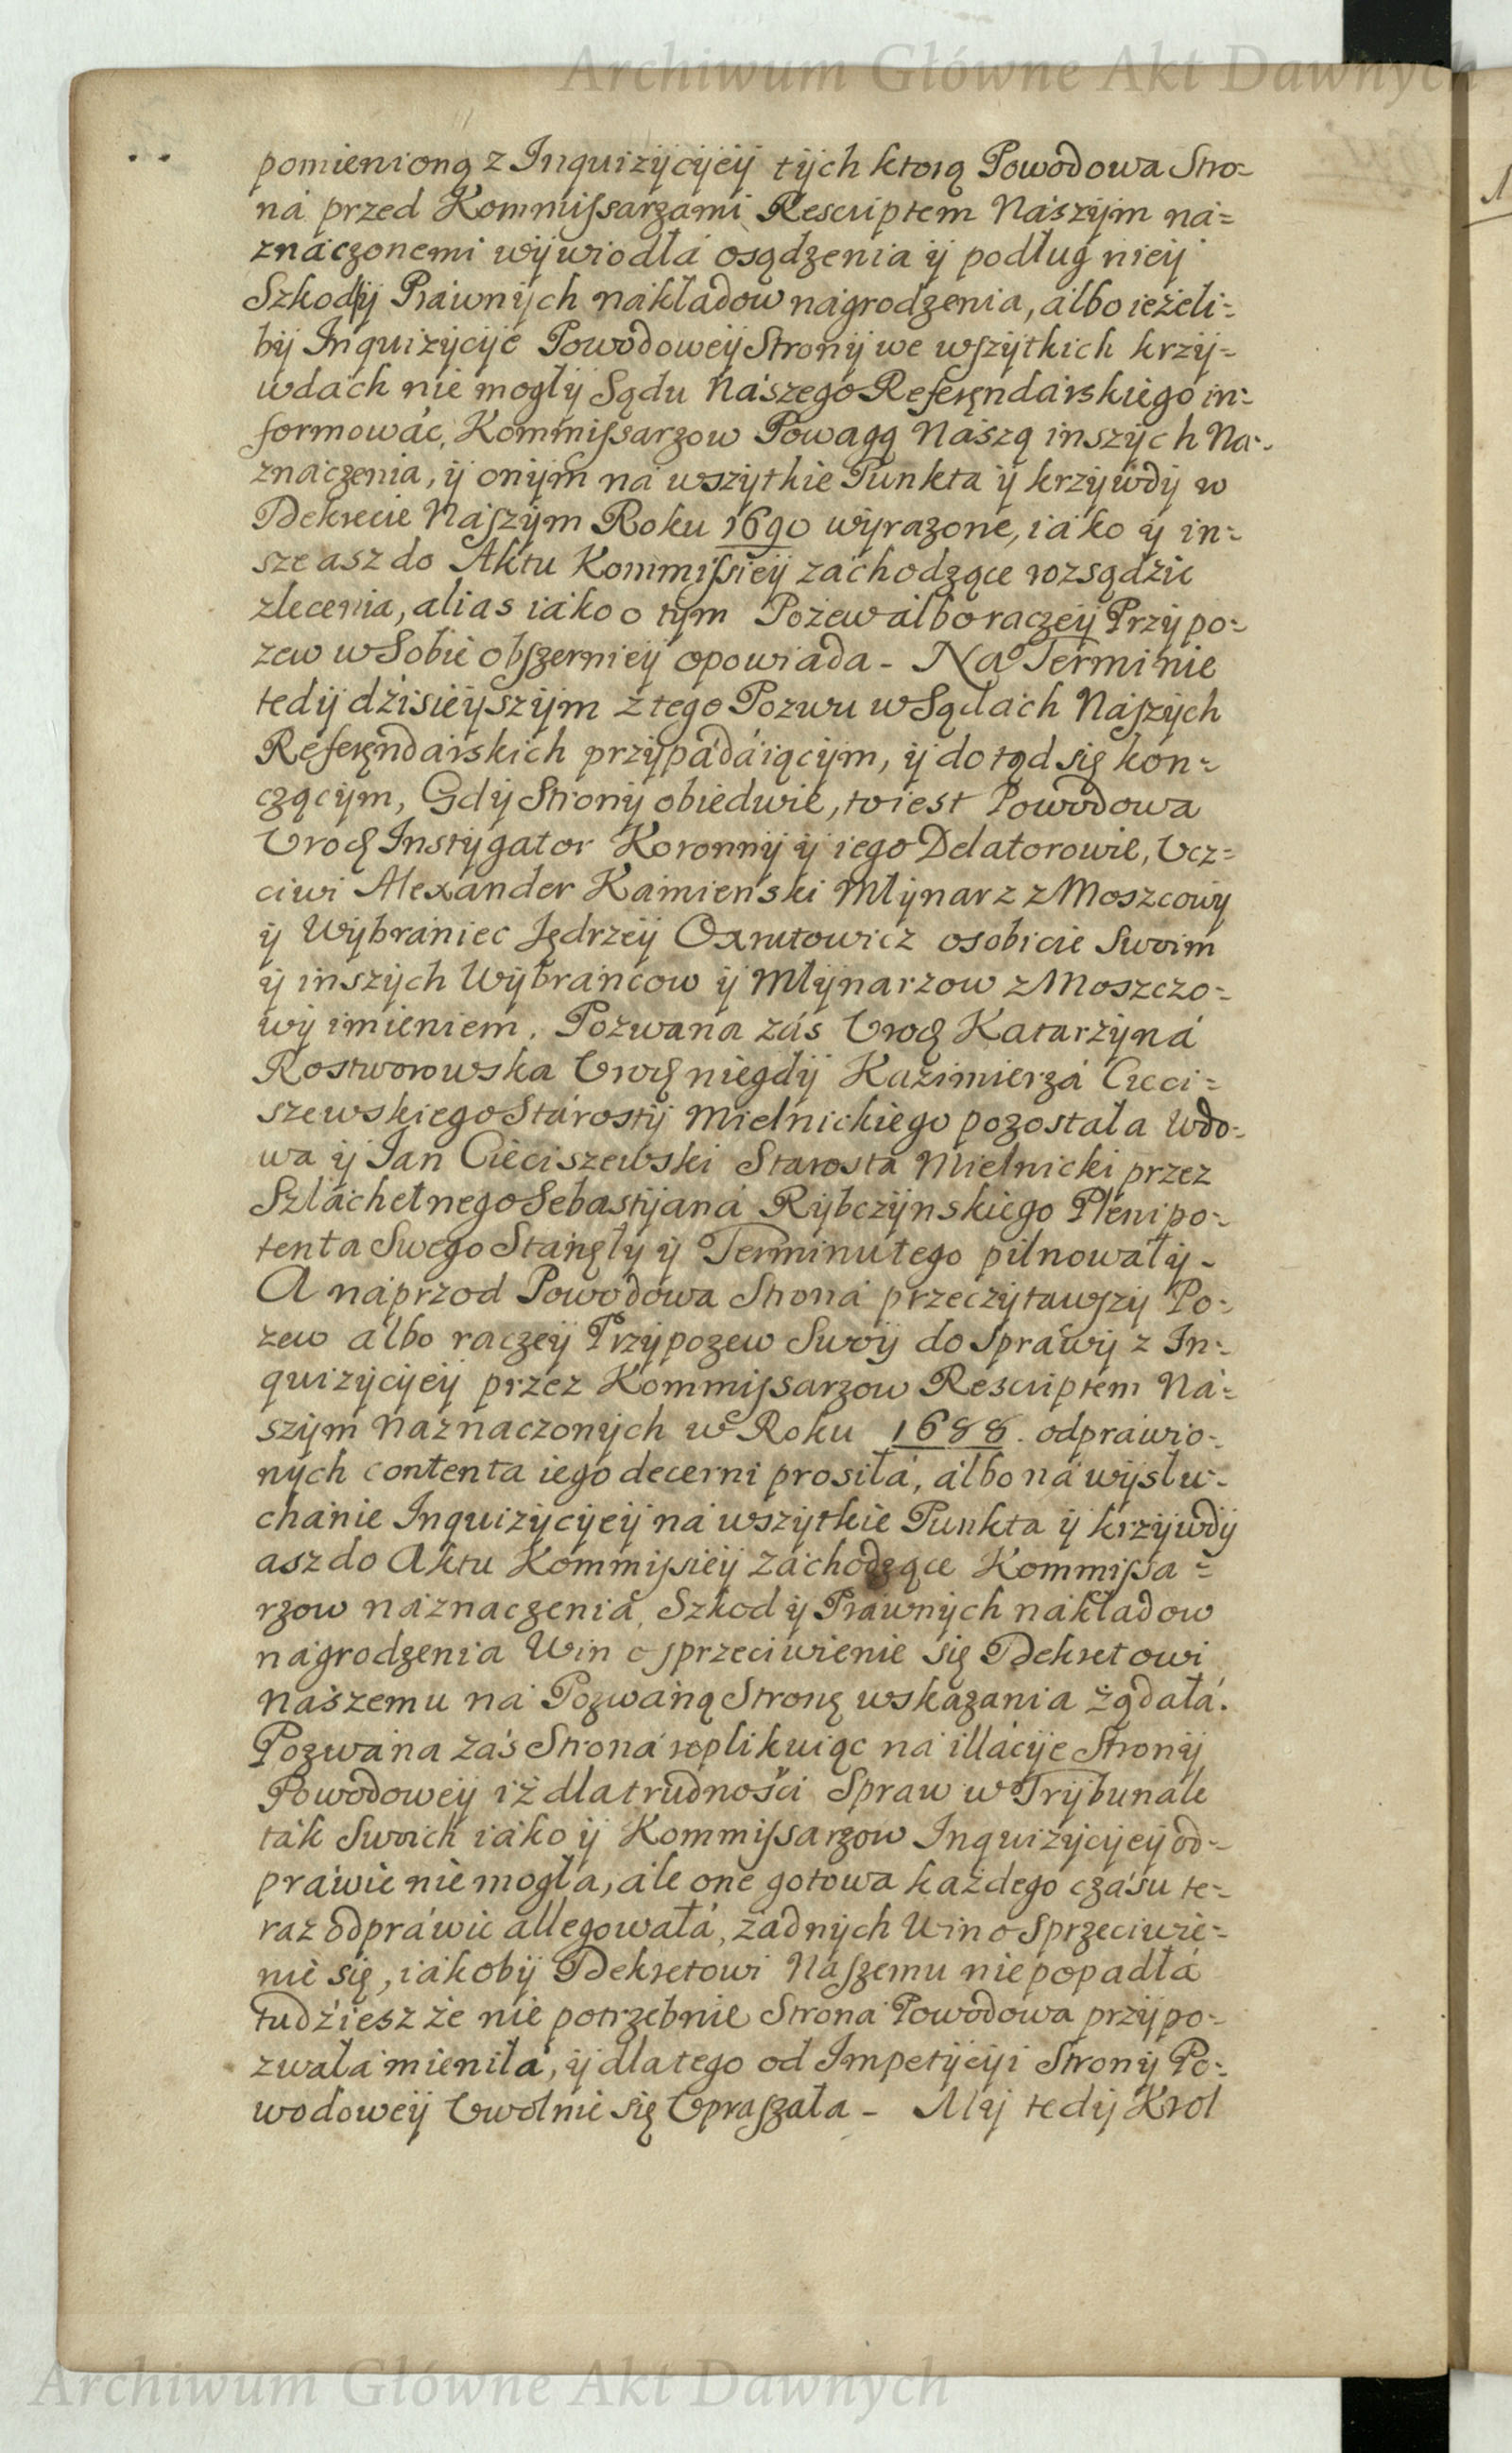 Archiwum Główne Akt Dawnych
pomienioną z Inquizycyey tych ktorą Powodowa Stro=
ná przed Kommissarzami Rescriptem Nászym ná=
znáczonemi wywiodłá osądzenia y podług niey
Szkod y Práwnych nákładow nágrodzenia, álbo ieżeli=
by Inquizycye Powodowey Strony we wszytkich krzy=
wdách nie mogły Sądu Nászego Referęndárskiego in=
formowáć, Kommissarzow Powagą Nászą inszych Ná=
znáczenia, y onym ná wszytkie Punkta y krzywdy w
Dekrecie Nászym Roku 1690 wyrazone, iáko y in=
sze asz do Aktu Kommissiey záchodzące rozsądzic
zlecenia, alias iáko o tym Pozew álbo raczey Przypo=
zew w Sobie obszerniey opowiáda - Na Terminie
tedy dzisieyszym z tego Pozwu w Sądách Nászych
Referęndárskich przypádáiącym, y dotąd się kon=
czącym, Gdy Strony obiedwie, to iest Powodowa
Vrodz Instygator Koronny y iego Delatorowie, Vcz=
ciwi Alexander Kámienski Młynarz z Moszcowy
y Wybrániec Jędrzey Oxrutowicz osobicie Swoim
y inszych Wybráncow y Młynarzow z Moszczo=
wy imieniem. Pozwana zás Vrodz Katarzyná
Rostworowska Vrodz niegdy Kázimierzá Cieci=
szewskiego Stárosty Mielnickiego pozostała Wdo=
wa y Jan Cieciszewski Starosta Mielnicki przez
Szláchetnego Sebastyaná Rybczynskiego Plenipo=
tenta Swego Stánęły y Terminu tego pilnowały -
A náprzod Powodowa Stroná przeczytawszy Po=
zew álbo raczey Przypozew Swoy do Spráwy z In=
quizycyey przez Kommissarzow Rescriptem Ná=
szym Náznaczonych w Roku 1688. odpráwio=
nych contenta iego decerni prosiłá, álbo ná wysłu=
chánie Inquizycyey ná wszytkie Punkta y krzywdy
asz do Aktu Kommissiey záchodzące Kommissa=
rzow náznaczenia, Szkod y Práwnych nákładow
nágrodzenia Win o sprzeciwienie się Dekretowi
nászemu ná Pozwáną Stronę wskazania ządáłá.
Pozwána záś Stroná replikuiąc ná illácye Strony
Powodowey iż dla trudności Spraw w Trybunale
ták Swoich iáko y Kommissarzow Inquizycyey od=
práwic nie mogłá, ále one gotowa każdego czásu te=
raz odpráwic allegowałá, zadnych Win o Sprzeciwie=
nie się, iákoby Dekretowi Nászemu nie popadłá
tudziesz że nie potrzebnie Strona Powodowa przypo=
zwałá mieniłá, y dla tego od Impetycyi Strony Po=
wodowey Vwolnic się Vpraszała - My tedy Krol
Archiwum Główne Akt Dawnych